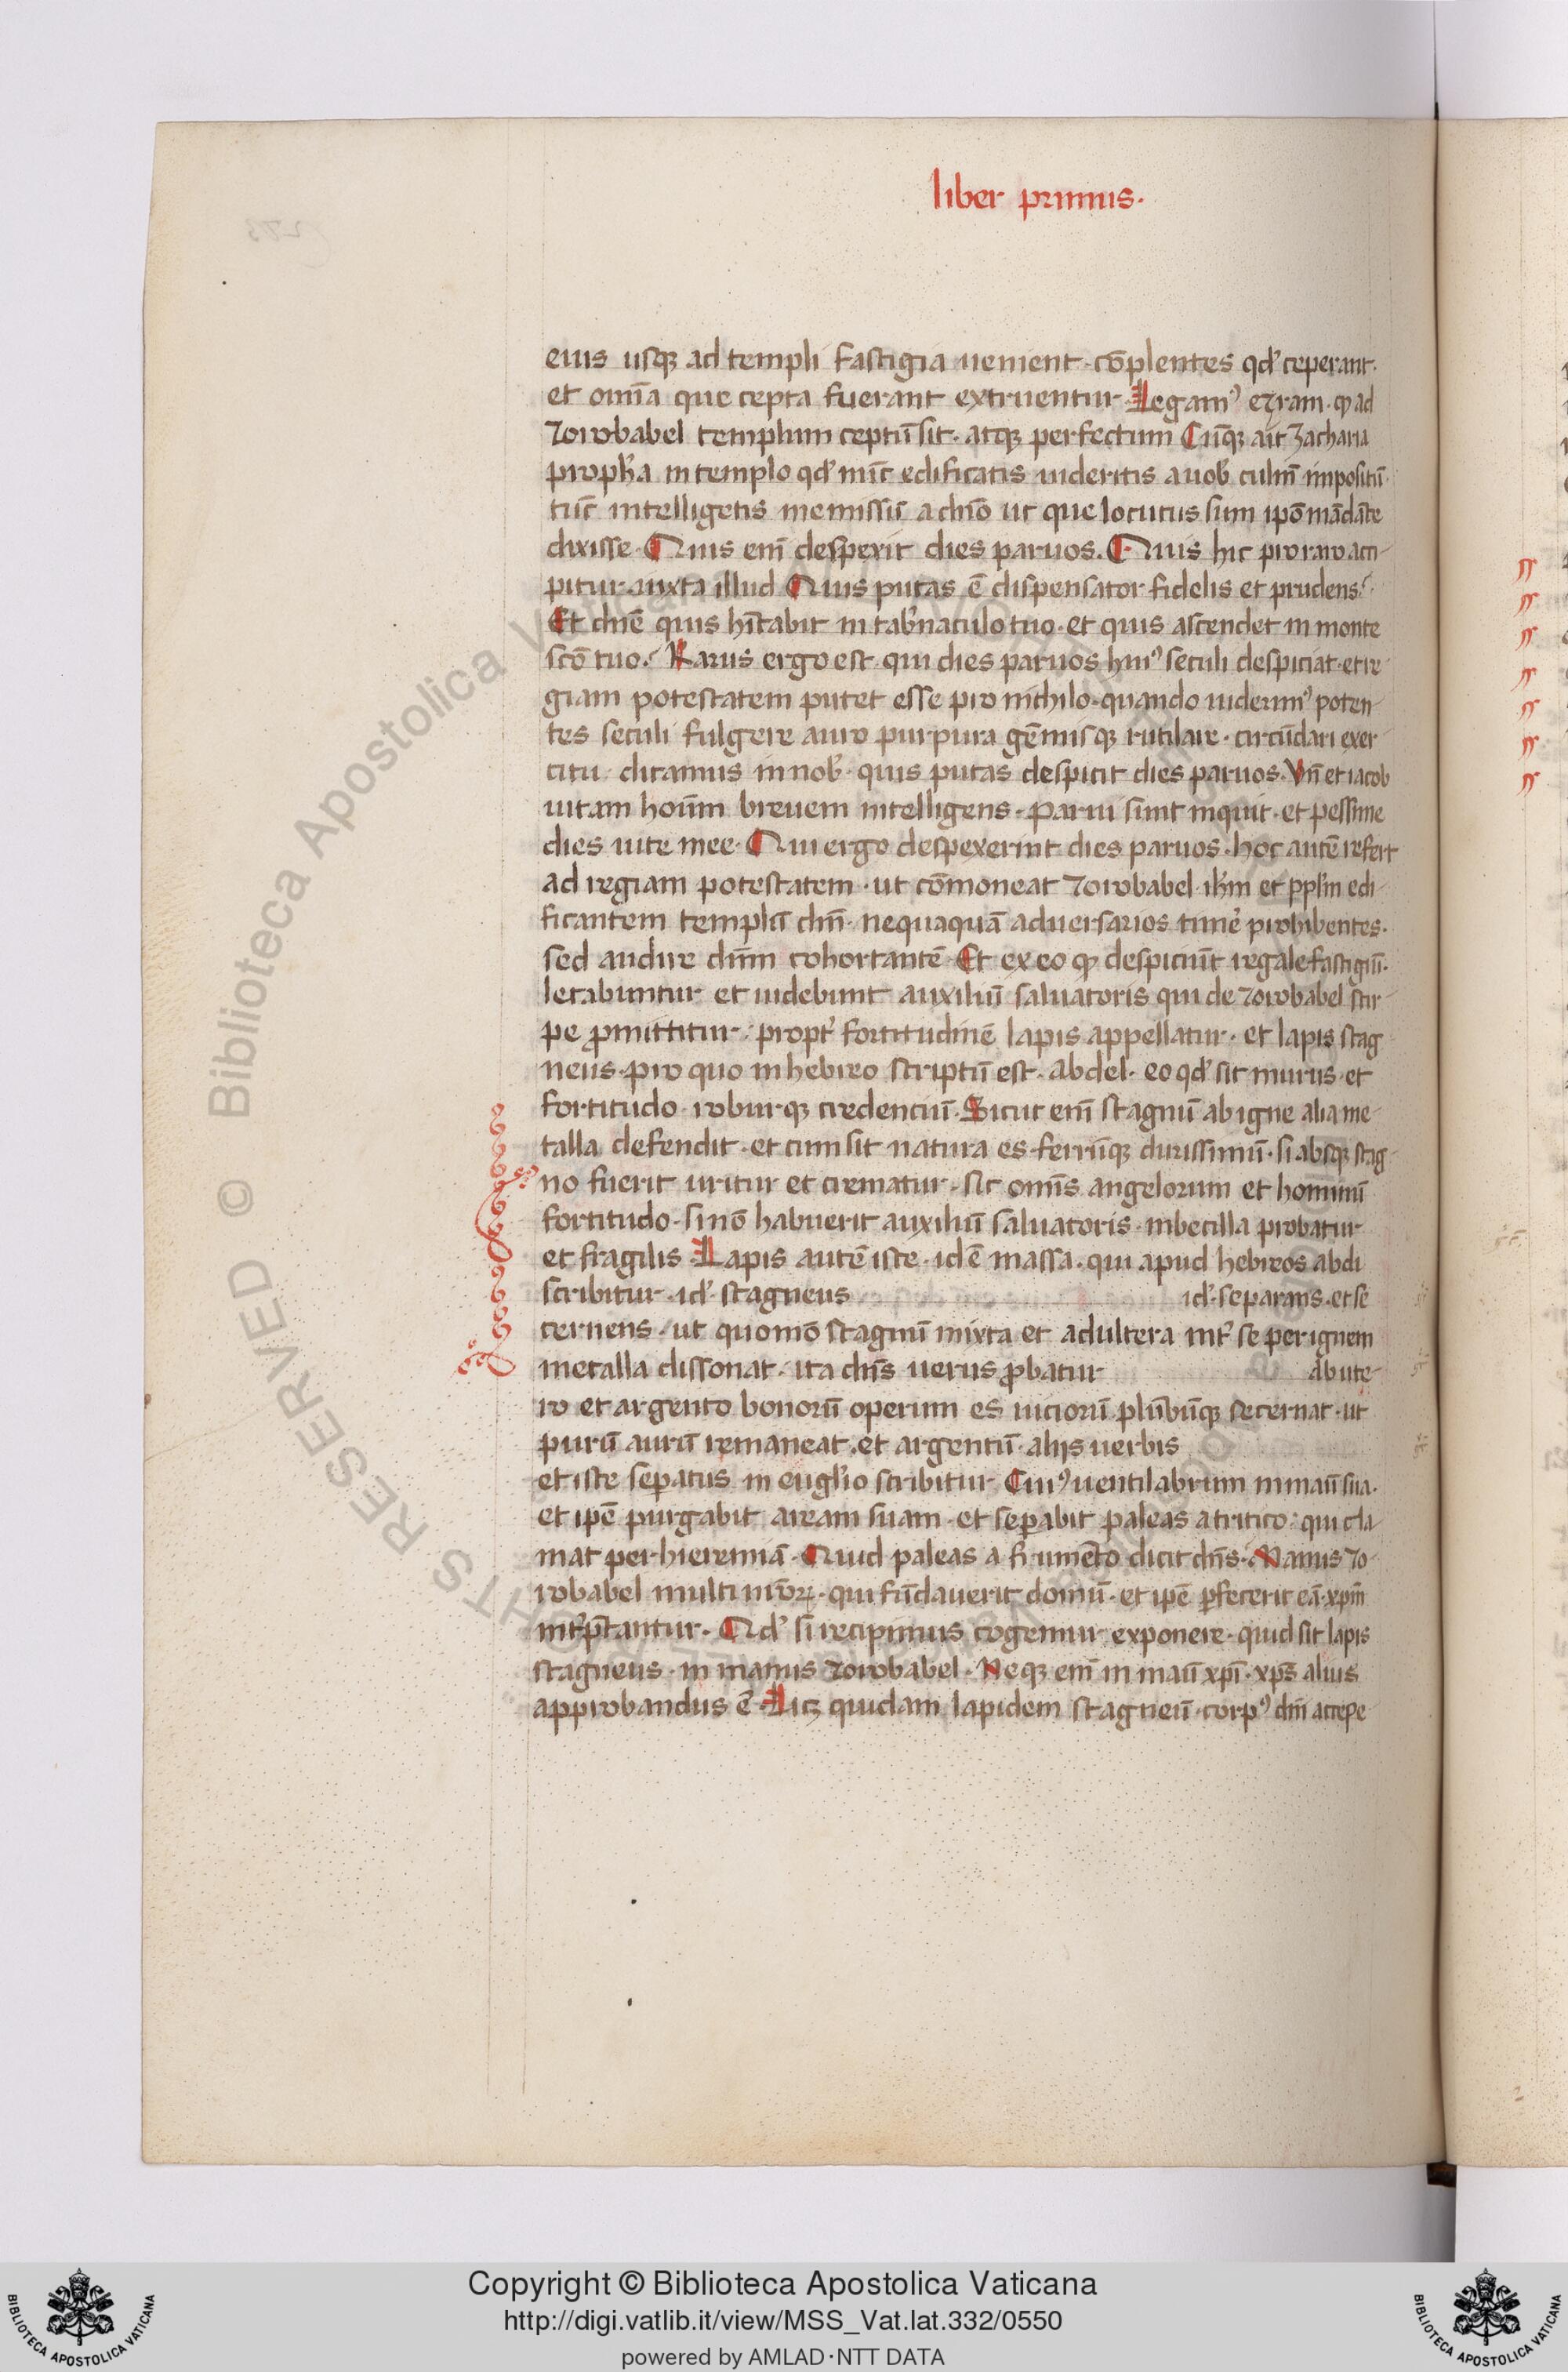 liber primus.
euis usq; ad templi fastigia uenient. cōplentes qd' ceperant.
et om̄ia que cepta fuerant extruentur. Legam⁹ eçram. qp ad
Zorobabel templum ceptū sit. atq; perfectum Cūq; ait Zacharia
prop̄ha in templo qd' nūc edificatis uideritis a uob̾ culm̄ impositū.
tūc intelligetis me missū a dn̄o ut que locutus sum ip̄o mādāte
dixisse. Quis eni᷑ despexit dies paruos. Quis hic pro raro acci-
pitur. iuxta illud Quis putas ē dispensator fidelis et prudens?
Et dn̄e quis hītabit in tab̾naculo tuo. et quis ascendet in monte
scō tuo? Rarus ergo est qui dies paruos hui⁹ seculi despiciat. et re-
giam potestatem putet esse pro nichilo. quando uiderim⁹ poten-
tes seculi fulgere auro purpura gēmisq; rutilare. circūdari exer-
citu. dicamus in nob̾. quis putas despicit dies paruos. Vn̄ et iacob
uitam hoīum breuem intelligens. Parui sunt inquit. et pessime
dies uite mee. Qui ergo despexerint dies paruos. hoc autē refert
ad regiam potestatem. ut cōmoneat Zorobabel. ih̄m et pp̄lm edi-
ficantem templū dn̄i. nequaquā aduersarios time᷑ prohibentes.
sed audire dn̄m cohortantē. Et ex eo qp despiciūt regale fastigiū.
letabuntur et uidebunt auxiliū saluatoris qui de Zorobabel stir-
pe p̄mittitur. propt̾ fortitudinē lapis appellatur. et lapis stag-
neus. pro quo in hebreo scriptū est. abdel. eo qd' sit murus et
fortitudo. roburq; credentiū. Sicut enī stagnū ab igne alia me-
talla defendit. et cum sit natura es ferrūq; durissimū. si absq; stag-
no fuerit uritur et crematur. sic om̄is angelorum et hominū
fortitudo. si nō habuerit auxiliū saluatoris. inbecilla probatur
et fragilis. Lapis autē iste. id ē massa. qui apud hebreos abdi
scribitur. id' stagneus id' separans. et se
cernens. ut quomō stagnū mixta et adultera int̾ se per ignem
metalla dissonat. ita dn̄s uerus p̄batur ab ute-
ro et argento bonorū operum es uiciorū plūbūq; secernat. ut
purū aurū remaneat. et argentū. aliis uerbis
et iste sep̄atus in euḡlio scribitur. Cui⁹ uentilabrum in manū sua.
et ip̄e purgabit aream suam. et sep̄abit paleas a tritico. qui cla-
mat per hieremiā. Quid paleas a frumēto dicit dn̄s. Manus Zo-
robabel multi nr̄oꝝ. qui fūdauerit domū. et ip̄e p̄fecerit eā. xp̄m
int̾p̄tantur. Qd' si recipimus cogemur exponere. quid sit lapis
stagneus. in manus Zorobabel. Neq; enī in manū xp̄i. xp̄s alius
approbandus ē. Licȝ quidam lapidem stagneū. corp⁹ dn̄i accepe-
Copyright © Biblioteca Apostolica Vaticana
http://digi.vatlib.it/view/MSS_Vat.lat.332/0550
powered by AMLAD·NTT DATA
BIBLIOTECA APOSTOLICA VATICANA
BIBLIOTECA APOSTOLICA VATICANA